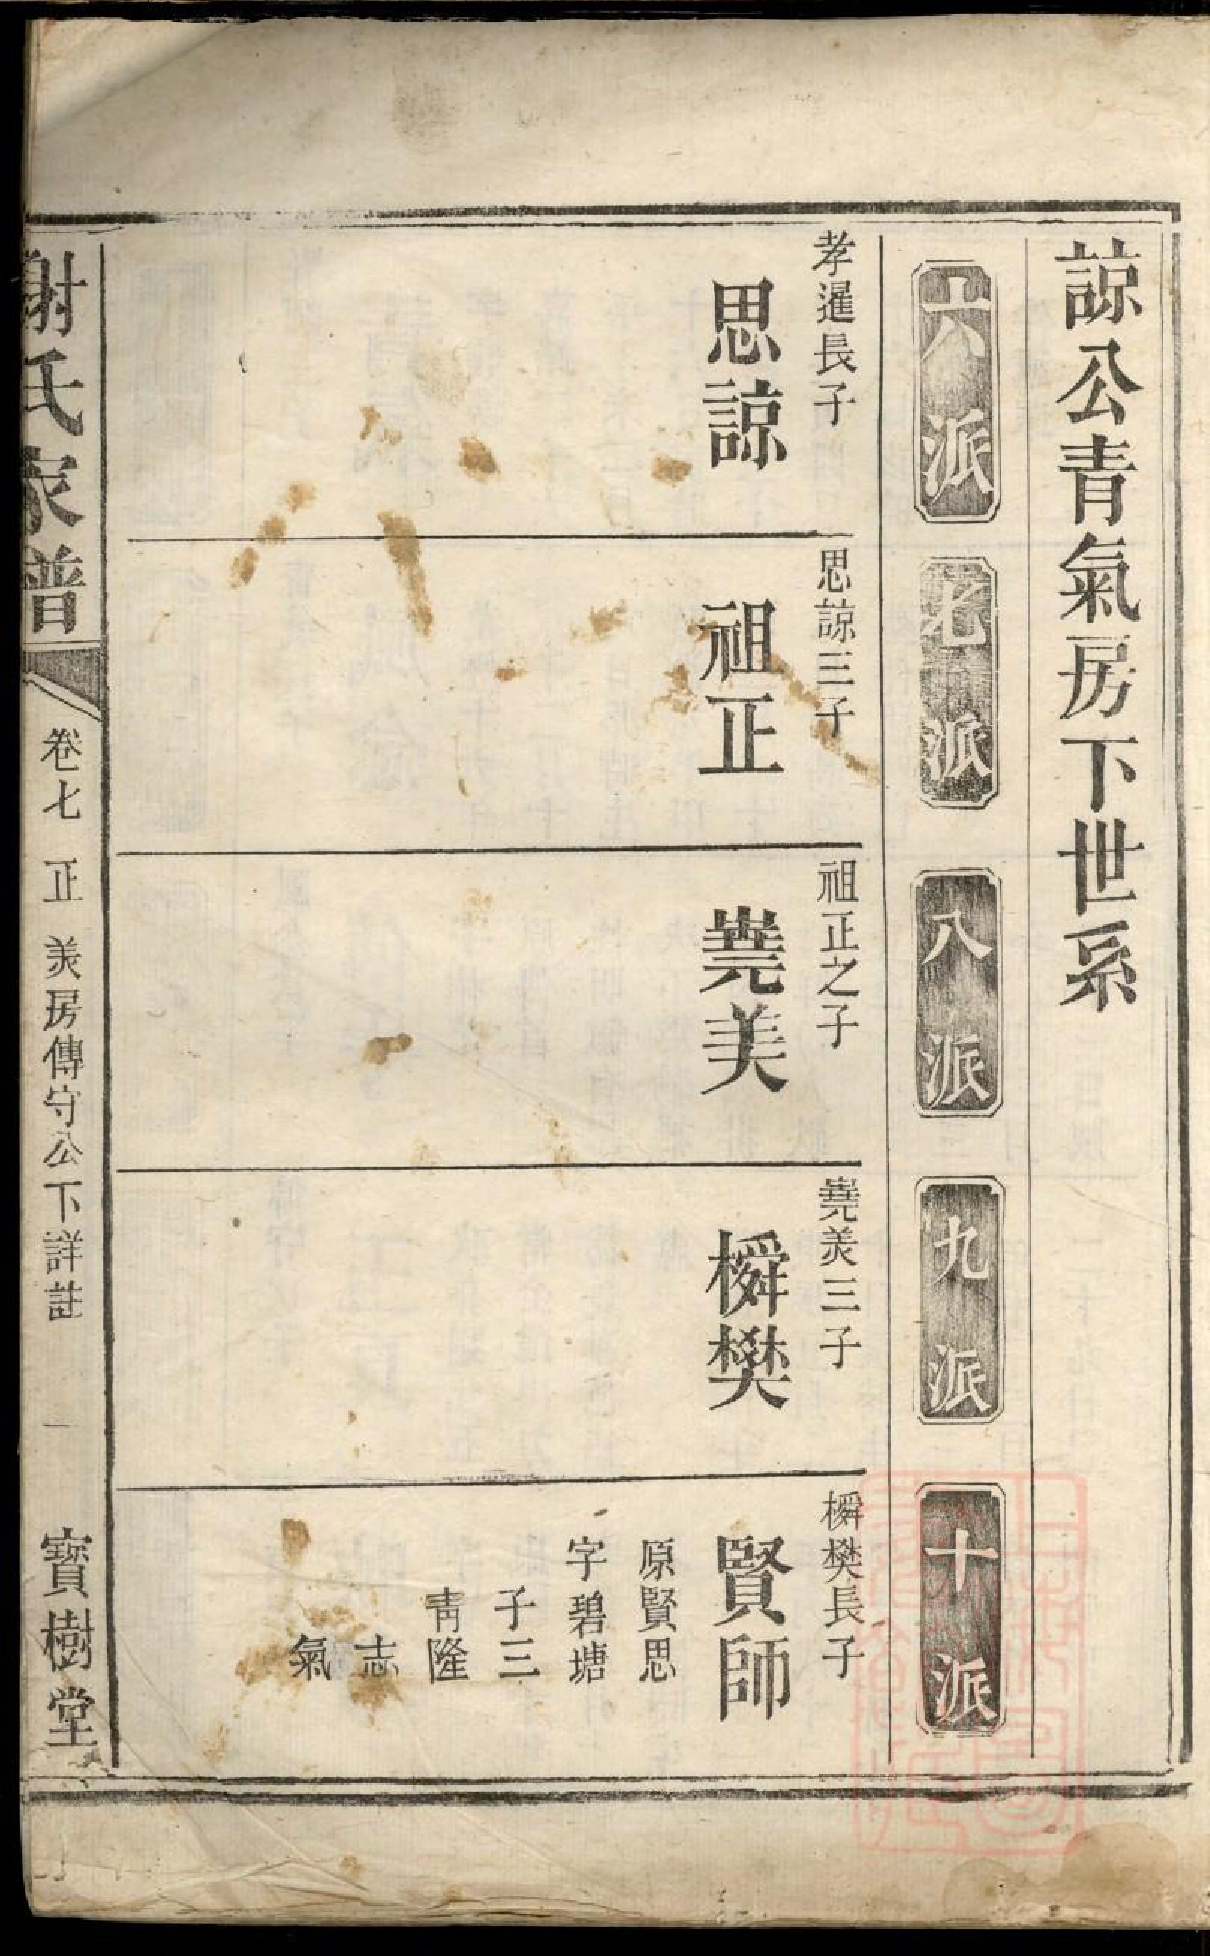 諒公青氣房下世系
六派
七派
八派
九派
十派
孝暹長子
思諒
思諒三子
祖正
祖正之子
堯美
堯美三子
橓樊
橓樊長子
賢師
原賢思
字碧塘
子三
靑隆
志
氣
謝氏家譜
卷七 正 美房傳守公下詳註 一
寶樹堂